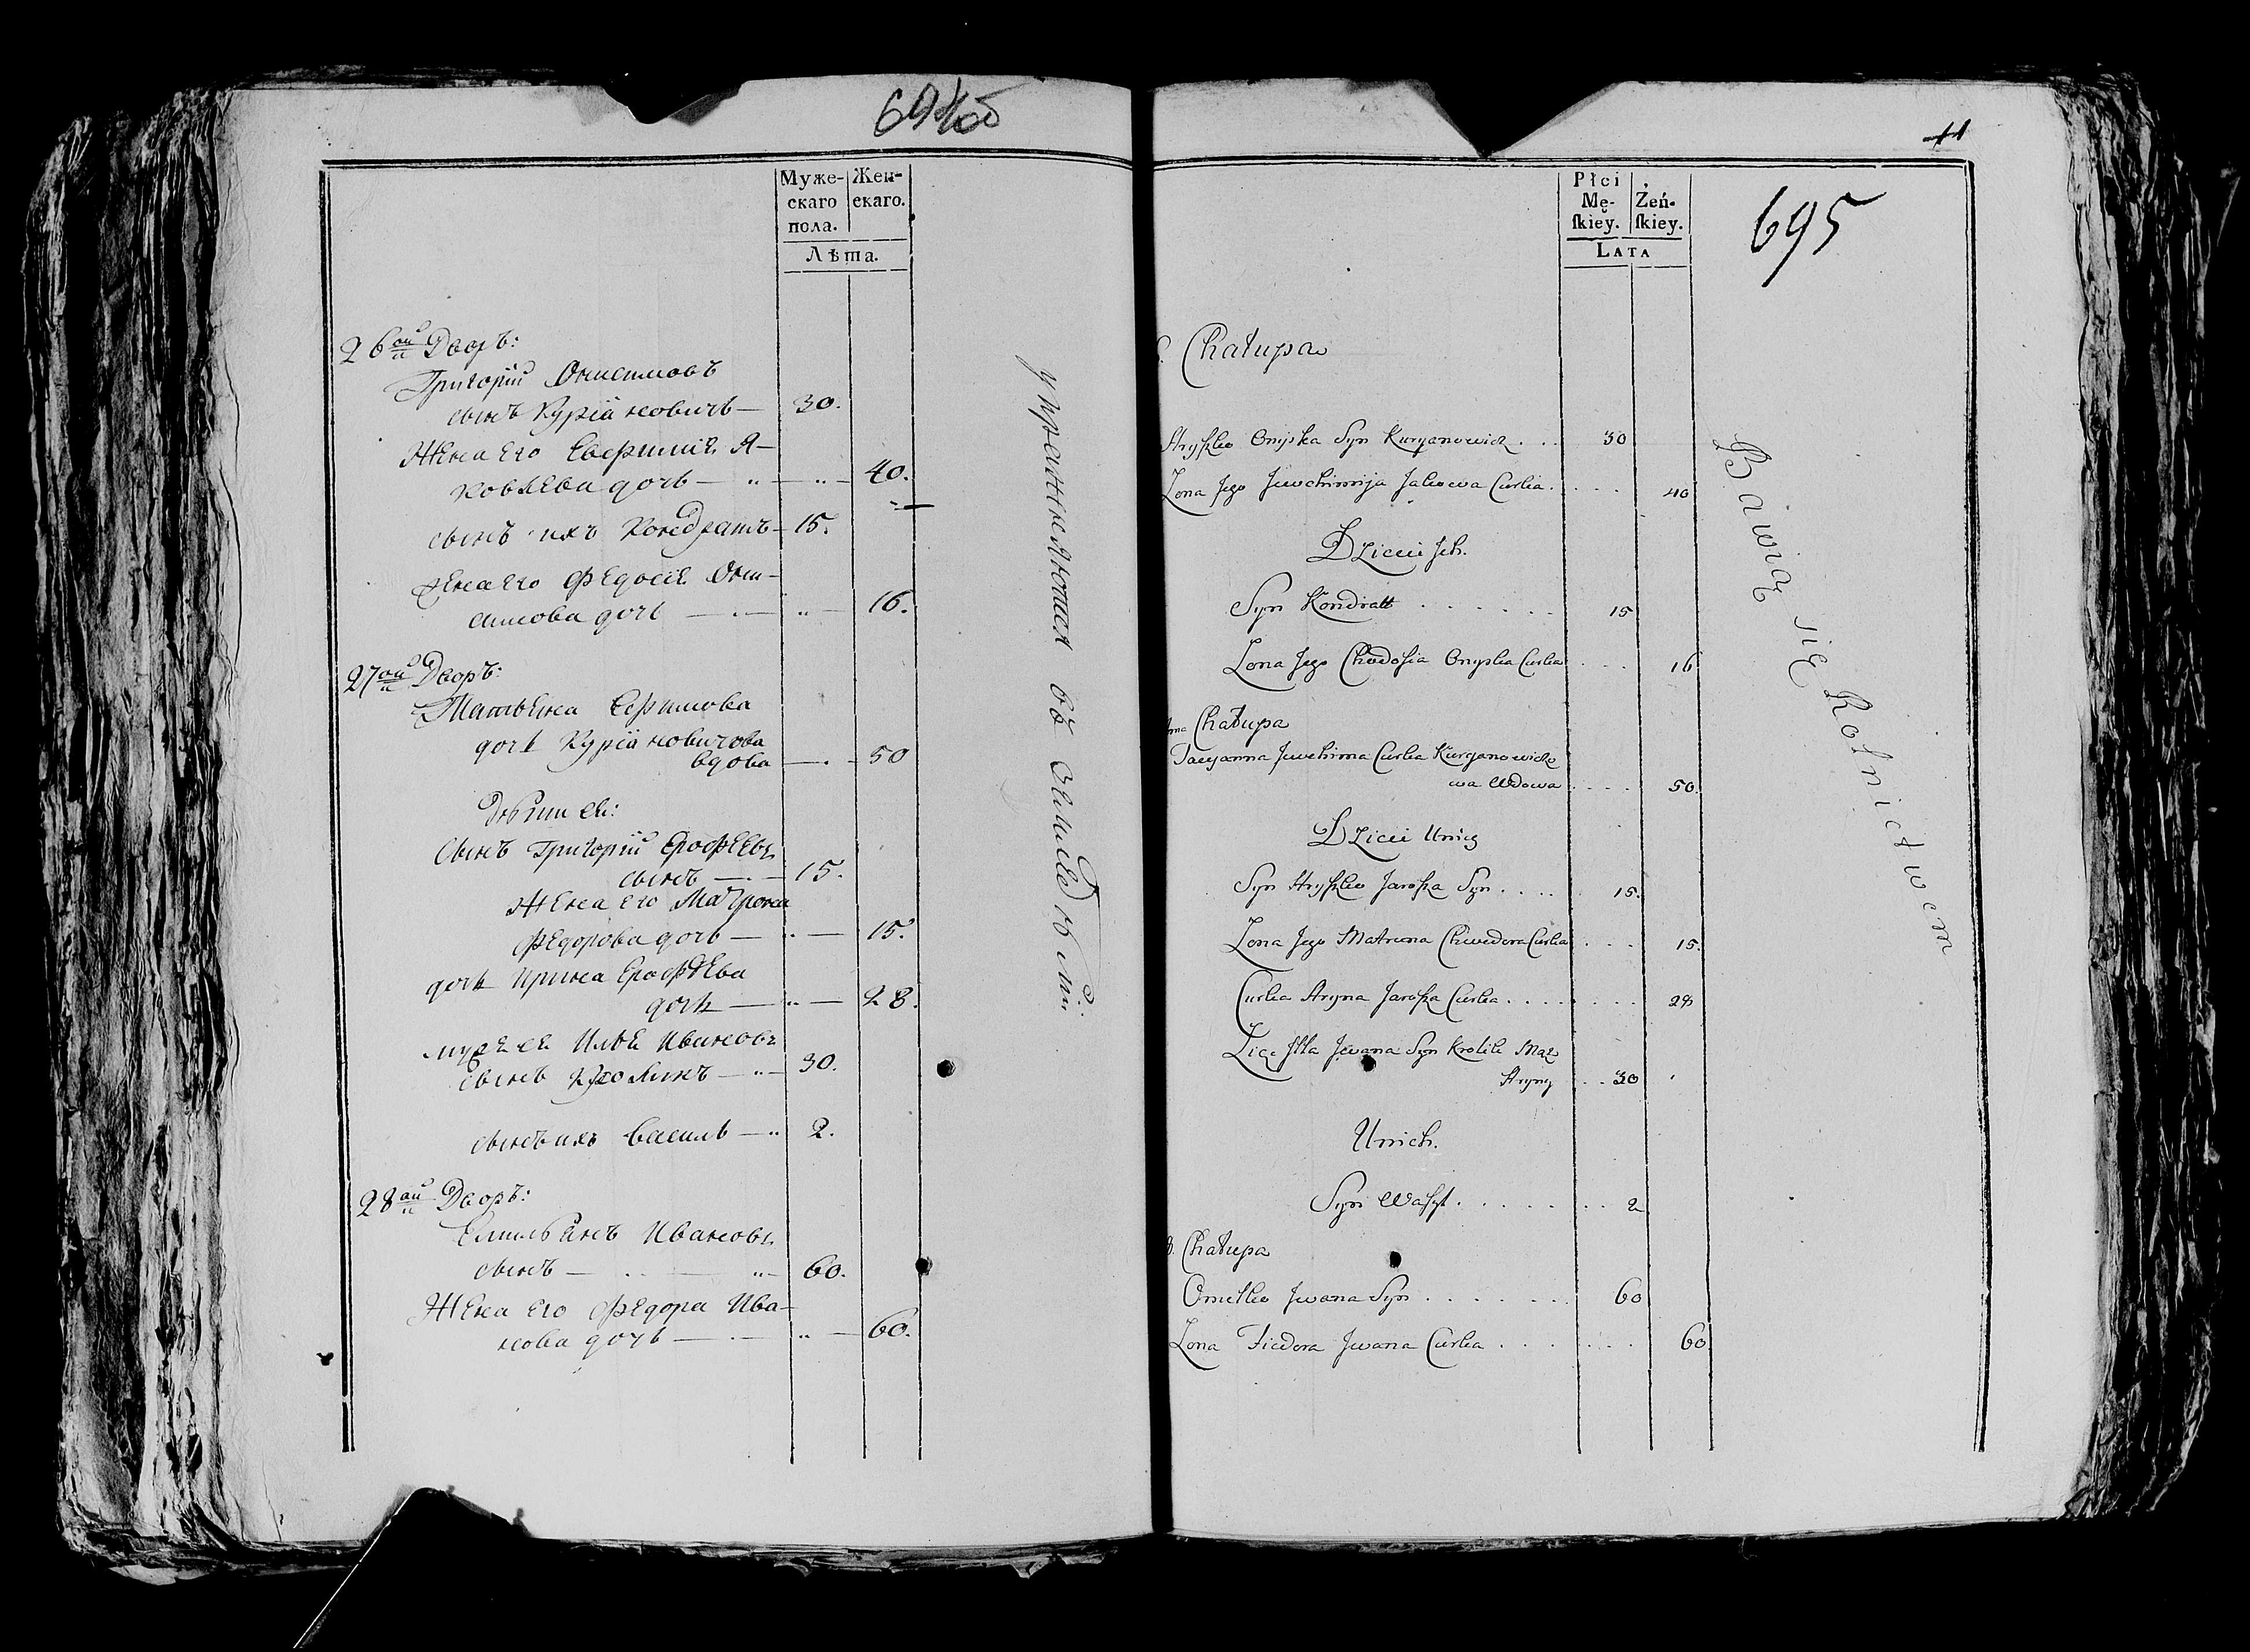 Муже- Жен-
скаго скаго.
пола.
Лѣта.
26ой Дворъ:
Григорій Онисимовъ
сынъ Куріяновичъ — 30.
Жена его Евфимія Я-
ковлева дочь — 40.
сынъ ихъ Кондратъ — 15.
жена его Федосія Они-
симова дочь — 16.
27ой Дворъ:
Татьяна Ефимова
дочь Куріяновичова
вдова — 50
Дѣти ея:
Сынъ Григорій Ерофеевъ
сынъ — 15.
Жена его Матрона
Федорова дочь — 15.
дочь Ирина Ерофѣева
дочь — 28.
мужъ ея Илья Ивановъ
сынъ Кроликъ — 30.
сынъ ихъ Василь — 2.
28ой Дворъ:
Емильянъ Ивановъ
сынъ — 60.
Жена его Федора Ива-
нова дочь — 60.
упражняются въ земледѣліи
41
695
Płci
Mę- Żeń-
ſkiey. ſkiey.
LATA
Chałupa
Hryſzko Onyska Syn Kuryanowicz . . . 30
Żona Jego Juchimija Jakowa Curka . . . 40
Dzieci Jch.
Syn Kondratt . . . . . . 15
Żona Jego Chwedoſia Onyska Curka . . . 16
Chałupa
Tacyanna Juchima Curka Kuryanowiczo
wa Wdowa . . . . 50.
Dzieci Unią
Syn Hryſzko Jaroſza Syn . . . . 15.
Żona Jego Matruna Chwedora Curka . . . 15.
Curka Aryna Jaroſza Curka . . . . 28
Zięć Jlla Jwana Syn Krolik Mąż
Aryny . . 30
Unich.
Syn Waſyl . . . . . . . 2
Chałupa
Omelko Jwana Syn . . . . . . 60
Żona Fiedora Jwana Curka . . . . . . 60
Bawią się Rolnictwem